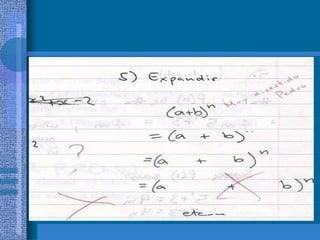 5) Expandir
x²+x-2
Muy divertido
Pedro
(a+b)ⁿ
= (a + b)ⁿ
2
?
=(a + b)ⁿ
=(a + b)ⁿ
etc